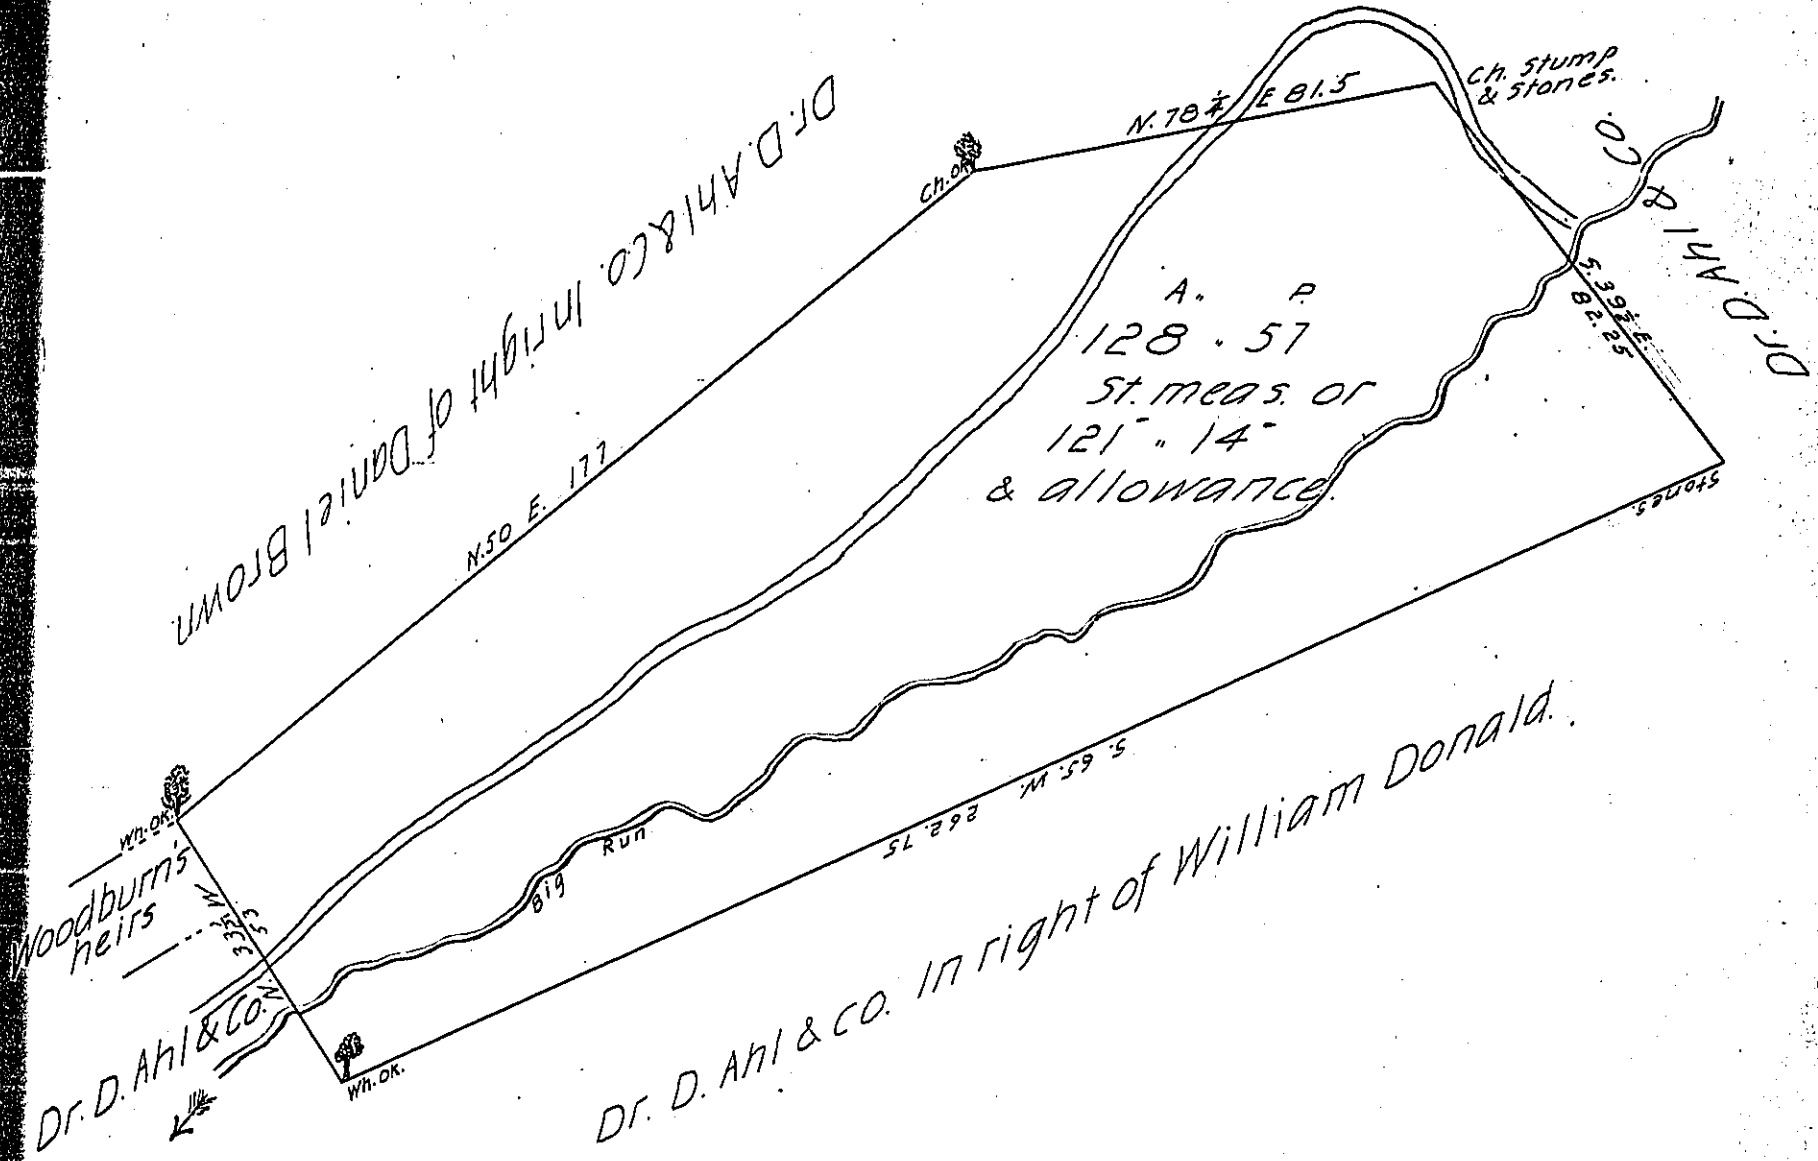 Dr. D. Ahl & Co. In right of Daniel Brown.
N. 50 E. 177
Ch. OK.
N. 78 1/4 E 81.5
Ch. Stump
& Stones.
Dr. D. Ahl & Co.
S. 39 1/2 E.
82.25
Stones.
A. P.
128 " 57
St. meas. or
121 " 14
& allowance.
S. 65. W. 262.75
Big Run
Wh. OK.
Woodburn's
heirs
N. 33 1/2 W
53
Dr. D. Ahl & Co.
Wh. OK.
Dr. D. Ahl & Co. In right of William Donald.